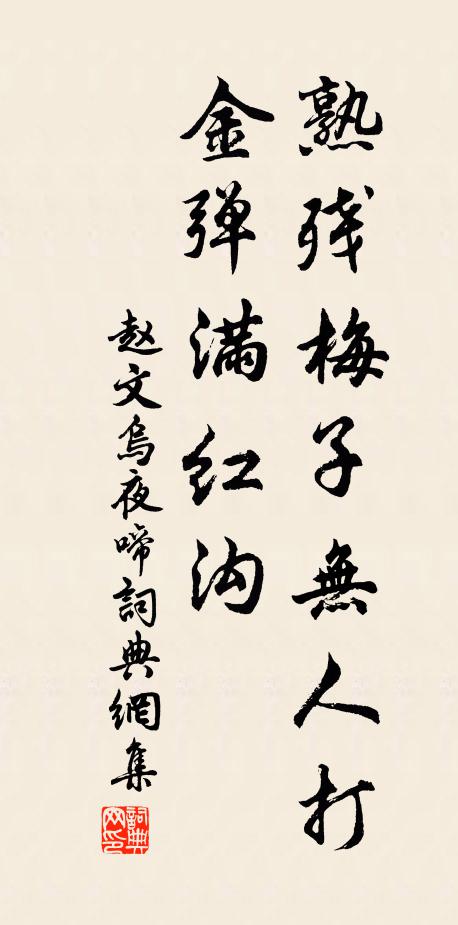 熟残梅子無人打
金弹满红沟
赵文烏夜啼詞典網集
詞典网印